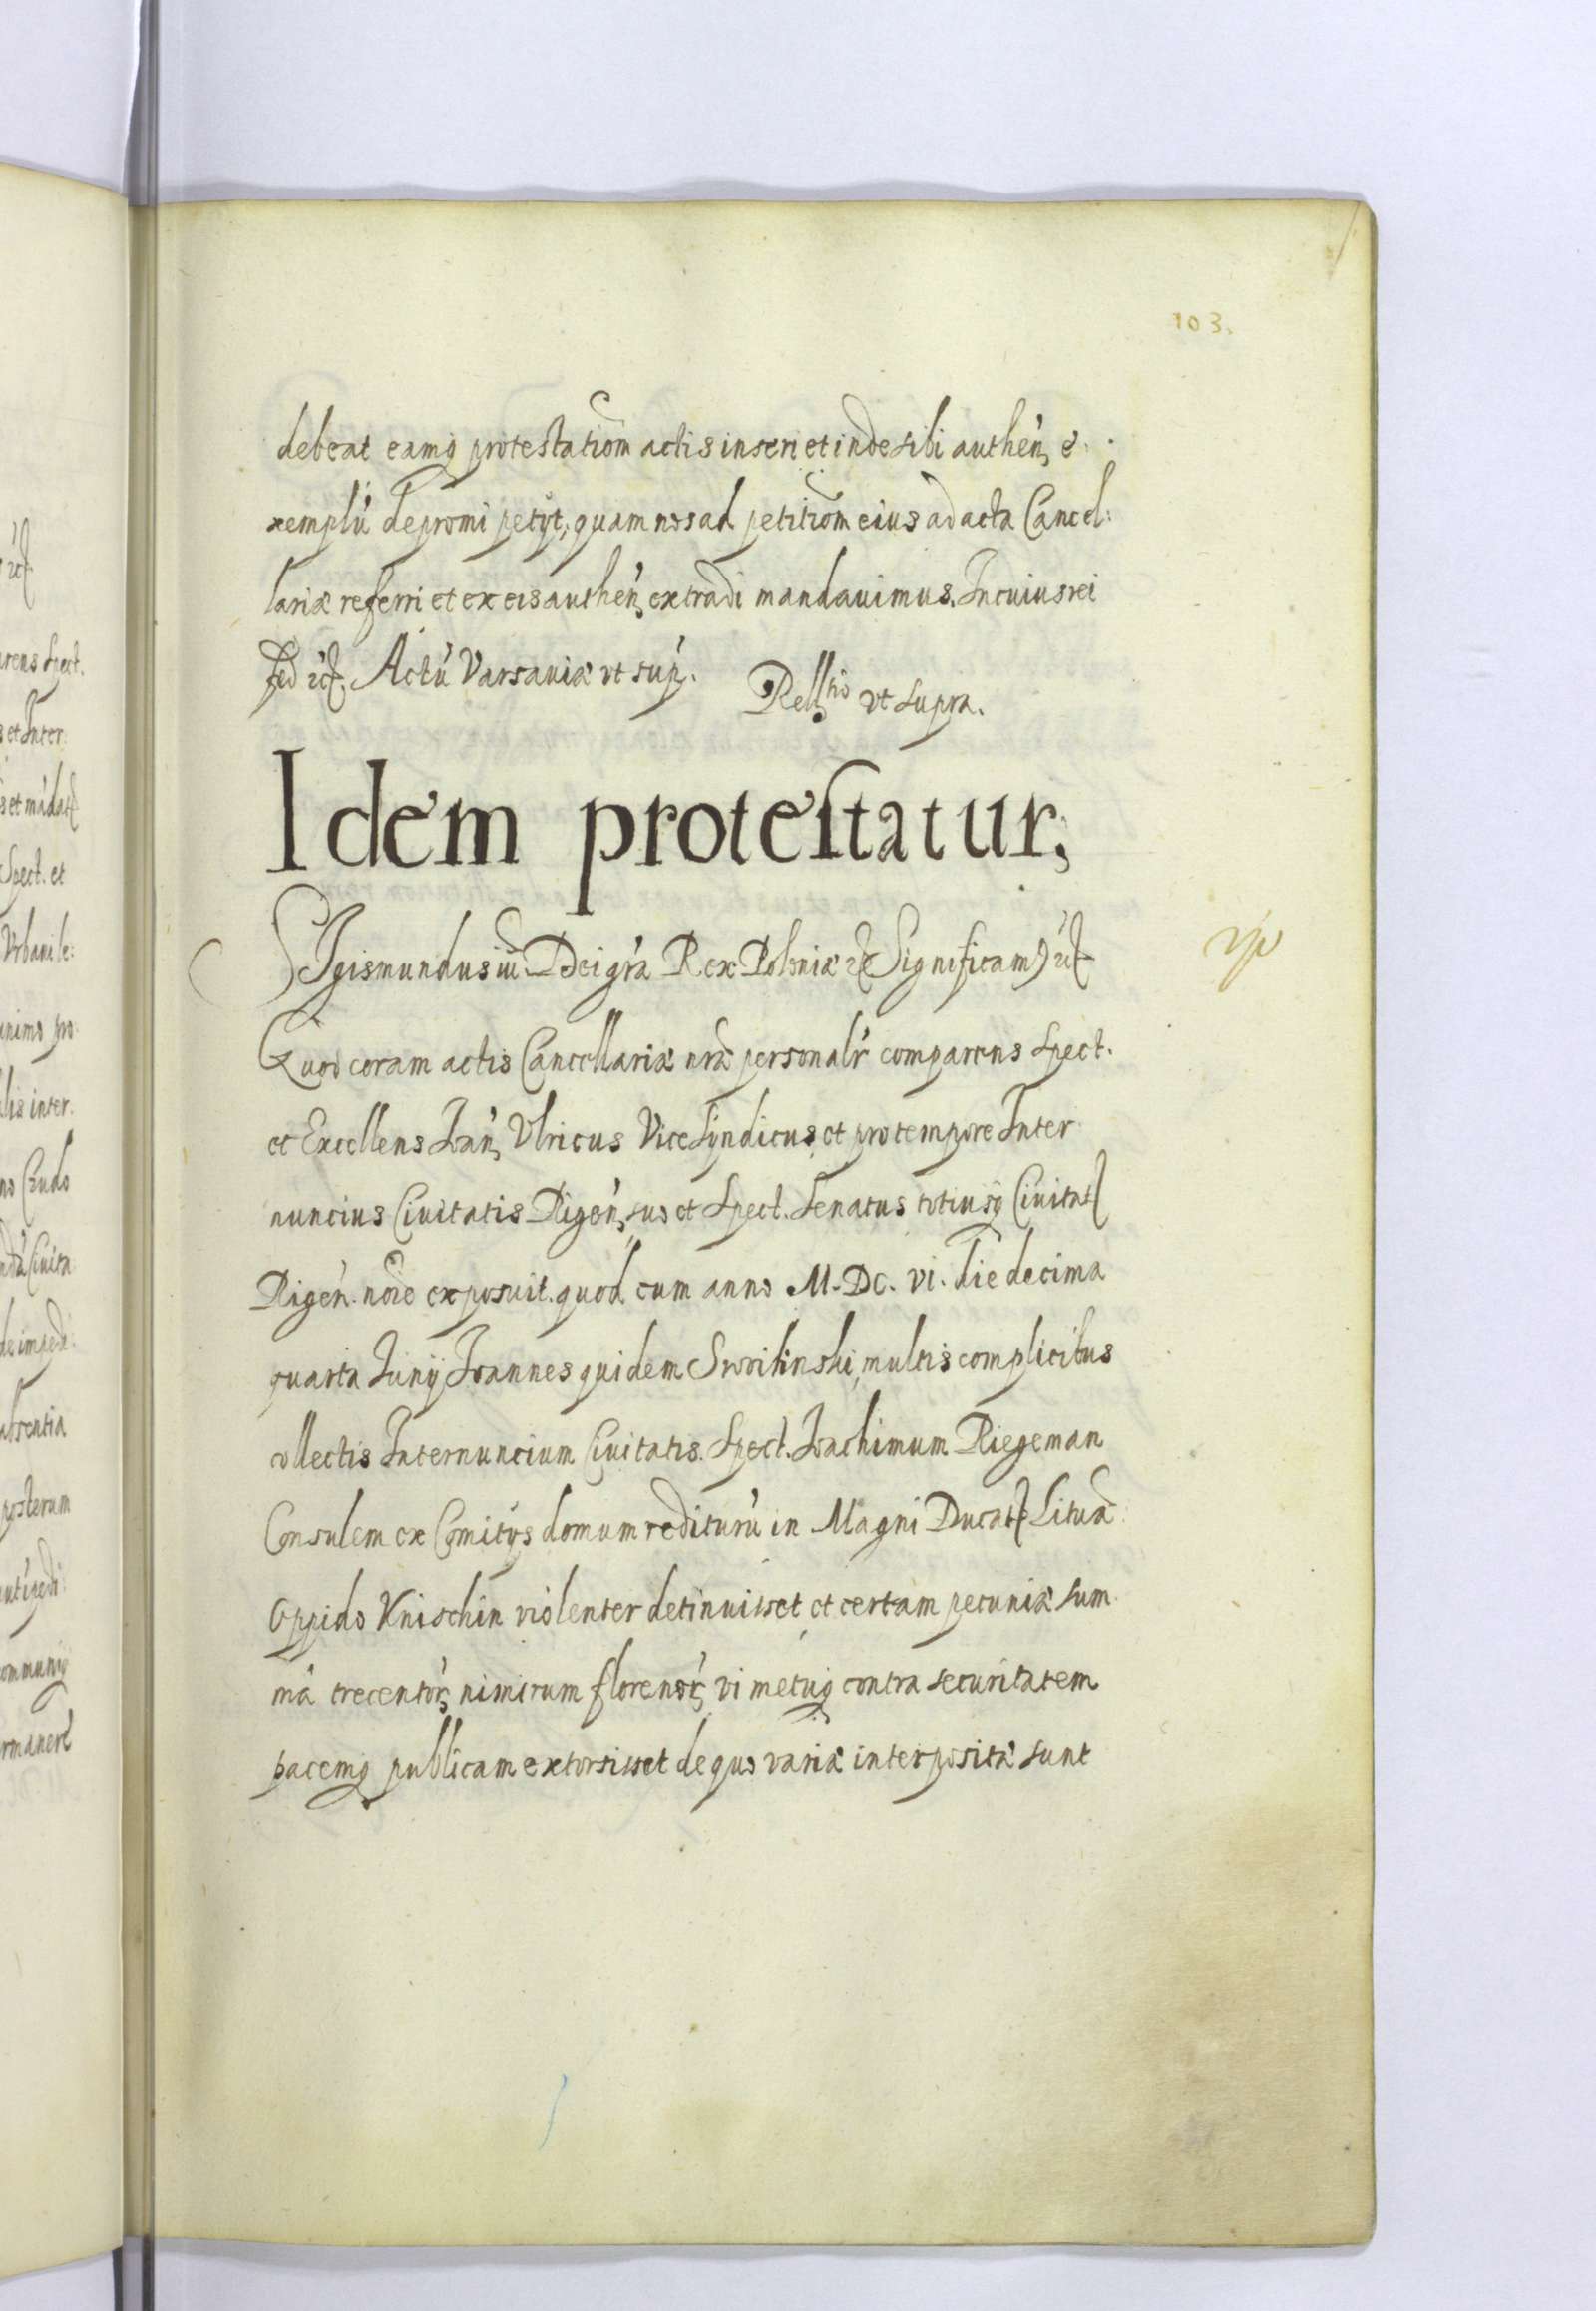 103.
debeat eamq protestatiom actis inseri et inde sibi authen, e
xemplu depromi petijt, quam nos ad petitiom eius ad acta Cancel:
lariæ referri et ex eis authen, extradi mandauimus. In cuius rei
fed etc. Actu Varsauiæ vt sup. Rell^tio vt supra.
Idem protestatur;
SIgismundus iii Dei gra Rex Poloniæ etc Significam9 etc
Quod coram actis Cancellariæ nræ personalr comparens Spect.
et Excellens Ioan, Vlricus Vice Syndicus, et pro tempore Inter
nuncius Ciuitatis Rigen, suo et Spect. Senatus totiusq Ciuitat
Rigen. noie exposuit. quod cum anno M.DC.VI. die decima
quarta Iunij Ioannes quidem Swolinski, multis complicibus
collectis Internuncium Ciuitatis. Spect. Ioachimum Riegeman
Consulem ex Comitijs domum redituru in Magni Ducat Lituæ
Oppido Knischin violenter detinuisset et certam pecuniæ sum
ma trecentor, nimirum florenor, vi metuq contra securitatem
pacemq publicam extorsisset de quo variæ interpositæ sunt